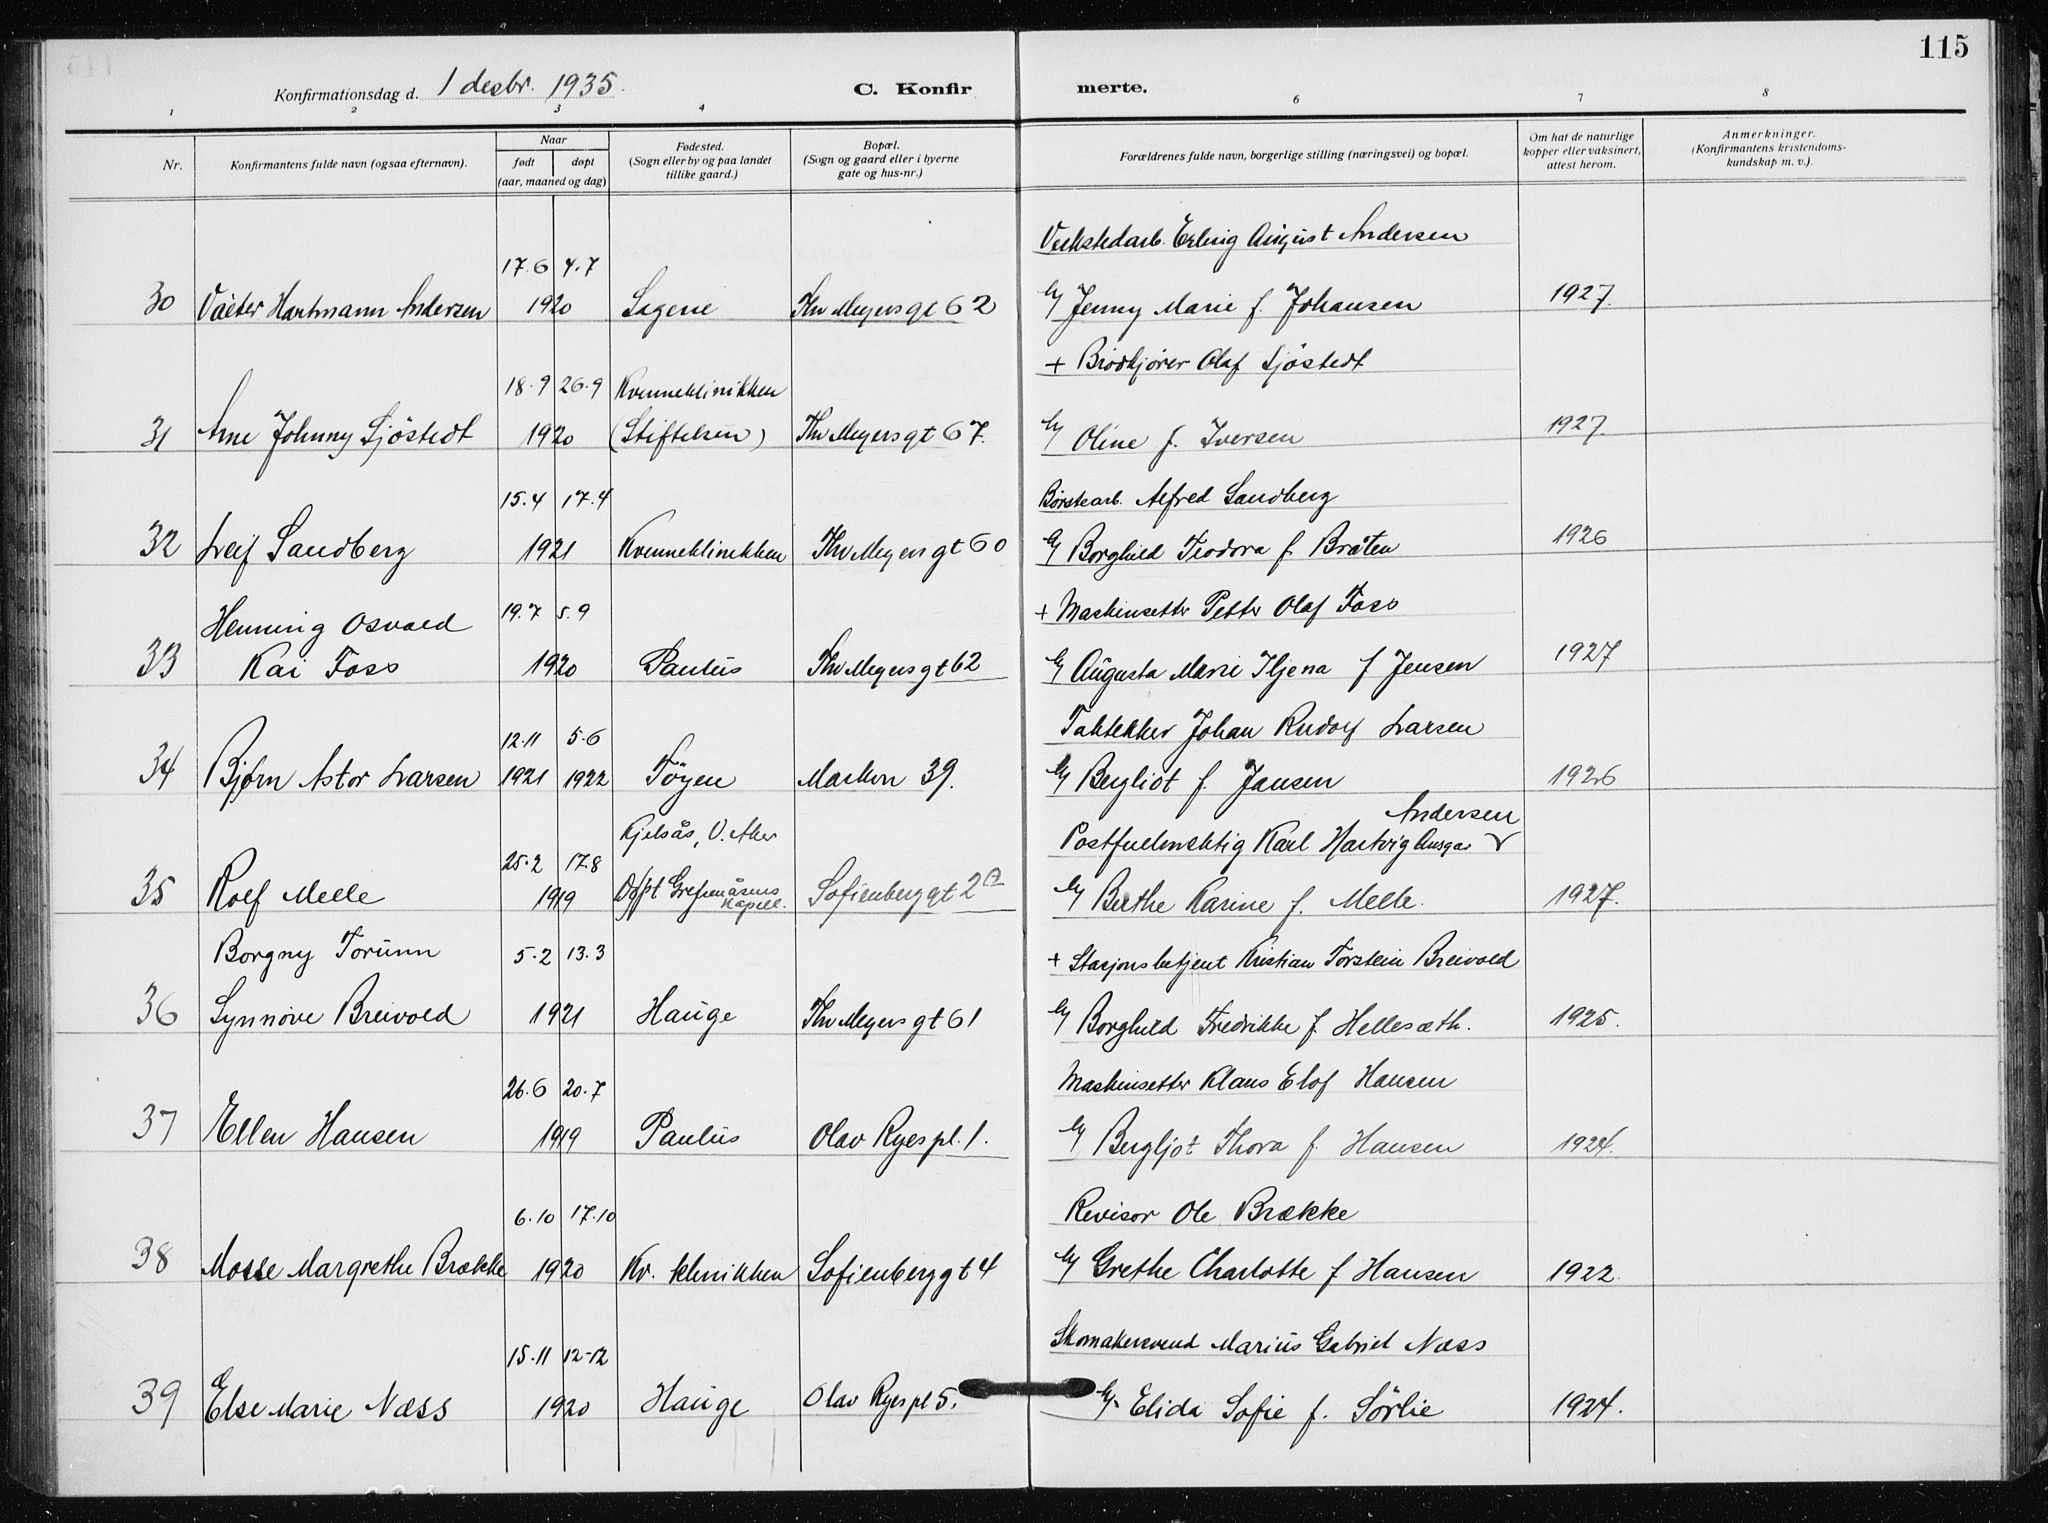 115
Konfirmationsdag d. 1 desbr. 1935.
C. Konfirmerte.
1 2 3 4 6 7 8
Nr.
Konfirmantens fulde navn (ogsaa efternavn).
Naar
født døpt
(aar, maaned og dag)
Fødested.
(Sogn eller by og paa landet
tillike gaard.)
Bopæl.
(Sogn og gaard eller i byerne
gate og hus-nr.)
Forældrenes fulde navn, borgerlige stilling (næringsvei) og bopæl.
Om hat de naturlige
kopper eller vaksinert,
attest herom.
Anmerkninger.
(Konfirmantens kristendoms-
kundskap m. v.).
Verkstedarb. Erling August Andersen
17.6 4.7
30 Valter Hartmann Andersen 1920 Sagene Thv Meyers gt 62 Jenny Marie f. Johansen 1927.
+ Brødkjører Olaf Sjöstedt
18.9 26.9 Kvinneklinikken
31 Arne Johnny Sjöstedt 1920 (Stiftelsen) Thv Meyers gt 67. Oline f. Iversen 1927.
15.4 17.4 Børstearb. Alfred Sandberg
32 Leif Sandberg 1921 Kvinneklinikken Thv Meyers gt 60 Borghild Teodora f. Bråten 1926
Henning Osvald 19.7 5.9 + Maskinsetter Petter Olaf Foss
33 Kai Foss 1920 Paulus Thv Meyers gt 62 Augusta Marie f Jensen 1927
12.11 5.6 Taktekker Johan Rudolf Larsen
34 Bjørn Astor Larsen 1921 1922 Töyen Markvn 39. Bergliot f. Jansen 1926
Andersen
Kjelsås, V. Aker Karl Hartvig Ansgar
25.2 17.8
35 Rolf Melle 1919 Døpt Grefsenåsens Kapell. Sofienberggt 2a Berthe Karine f. Melle. 1927.
Borgny Torunn 5.2 13.3 + Stasjonsbetjent Kristian Torstein Breivold
36 Synnöve Breivold 1921 Hauge Thv Meyers gt 61 Borghild Fredrikke f Hellesæth. 1925.
26.6 20.7 Maskinsetter Klaus Elof Hansen
37 Ellen Hansen 1919 Paulus Olav Ryes pl. 1. Bergljot Thora f. Hansen 1924.
6.10 17.10 Revisor Ole Brække
38 Mosse Margrethe Brække 1920 Kv. klinikken Sofienberggt 4 Grethe Charlotte f Hansen 1922.
15.11 12-12 Skomakersvend Marius Gabriel Næss
39 Else Marie Næss 1920 Hauge Olav Ryes pl 5. Elida Sofie f. Sörlie 1924.